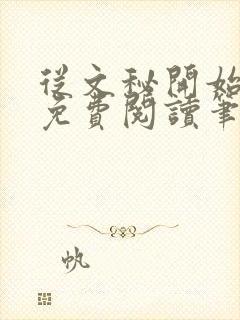 從文秘開始
免費閱讀筆
帆